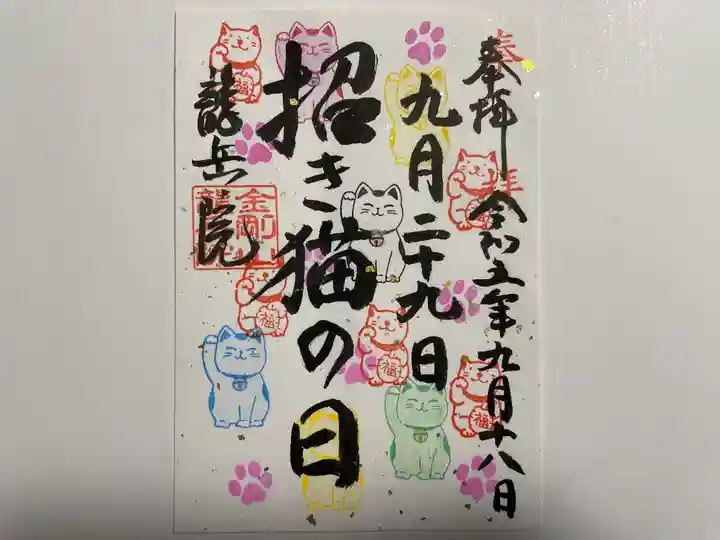 奉拝 令和五年九月十八日
九月二十九日
招き猫の日
龍岳院
奉拝
福
福
福
福
福